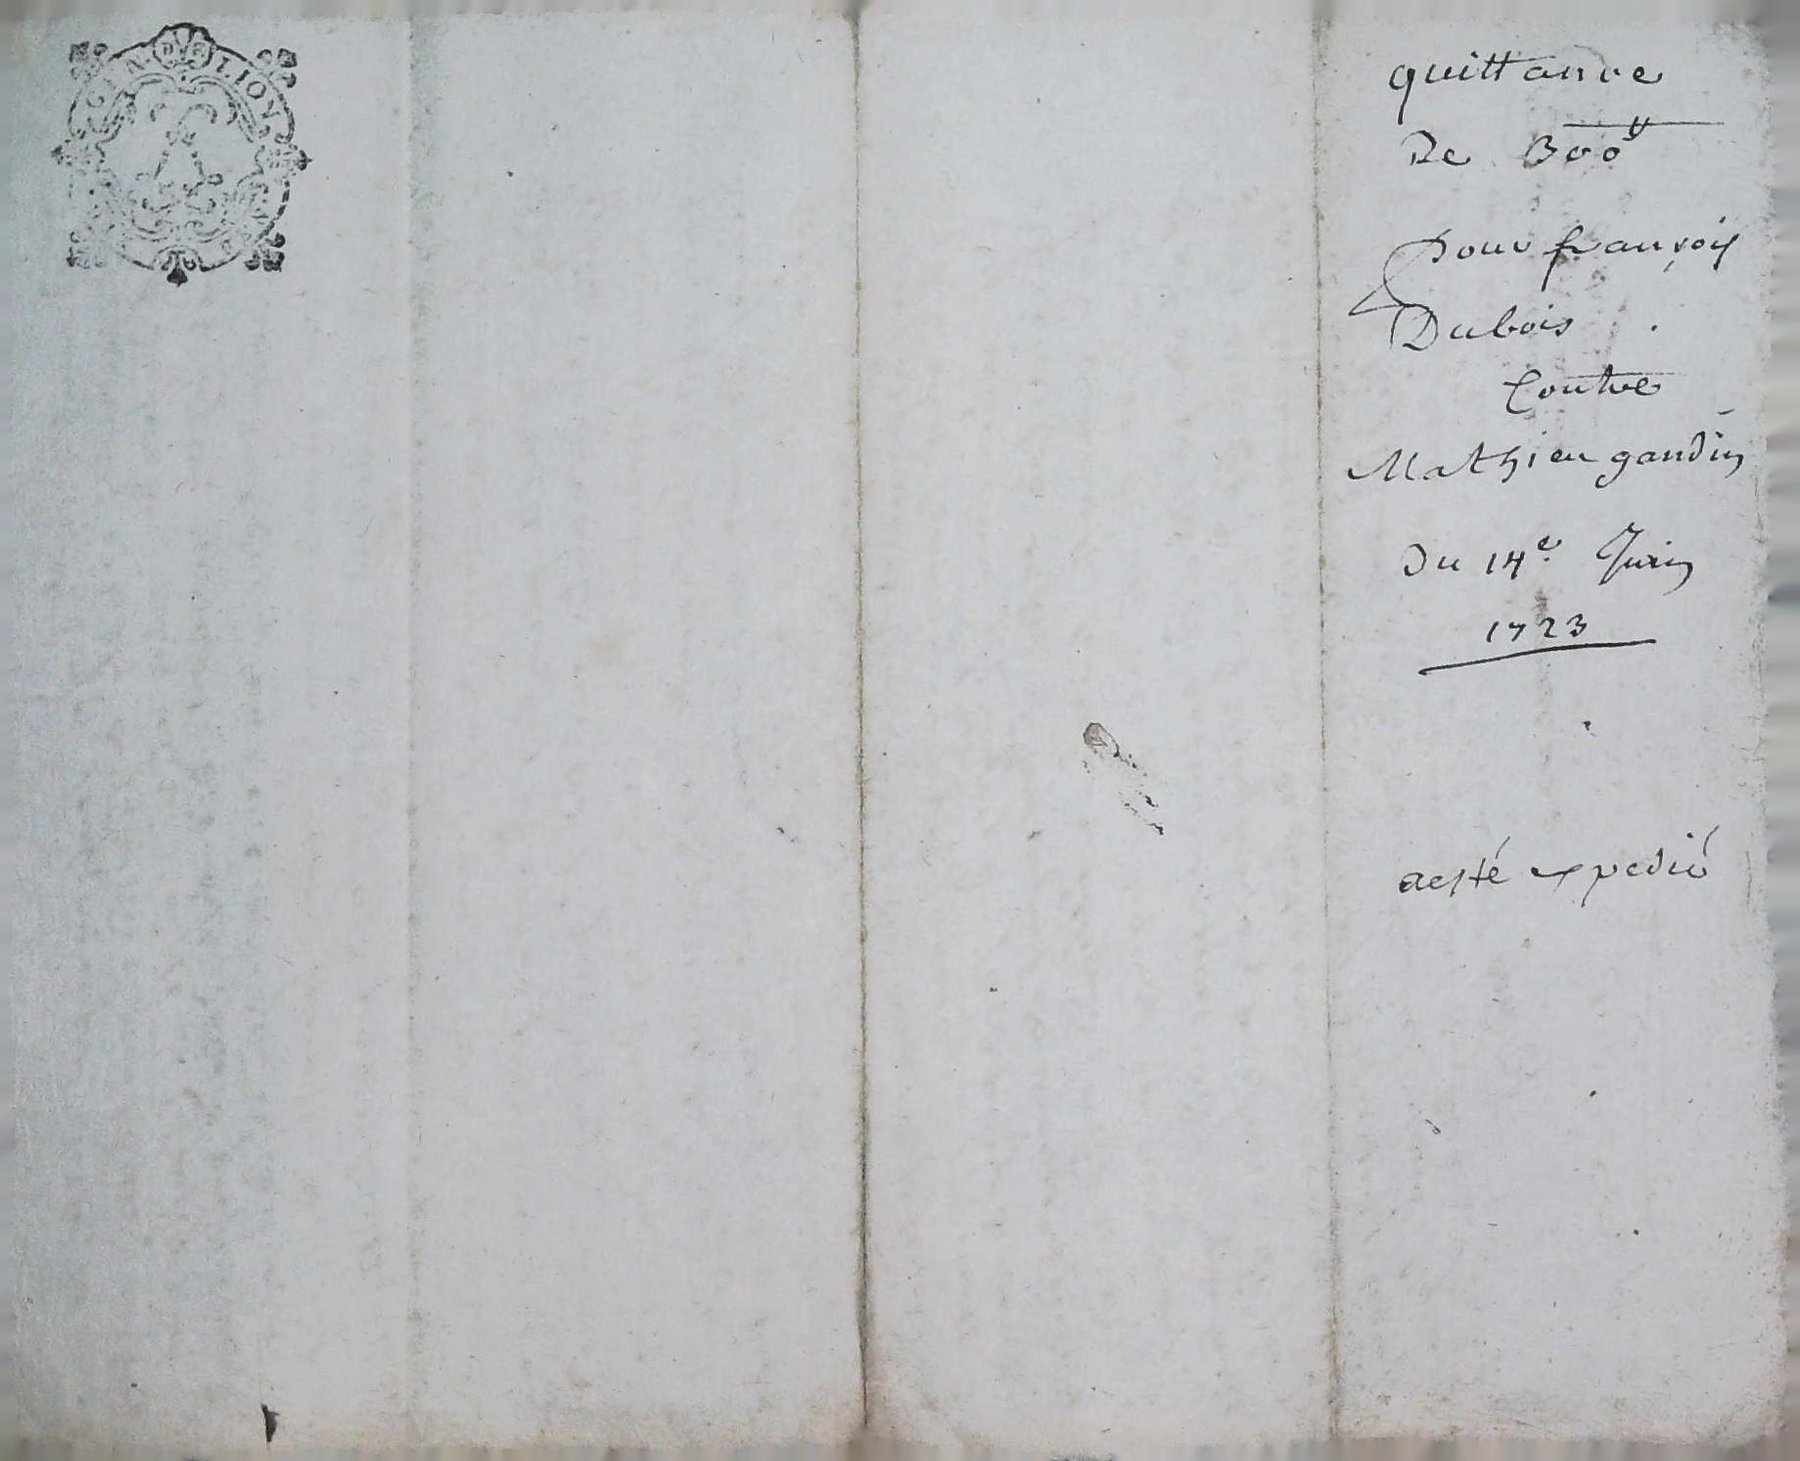 GEN. DE LION
quittance
De 300ᵗᵗ
Pour françois
Dubois
Contre
Mathieu gandin
Du 14e Juin
1723
aesté expedié